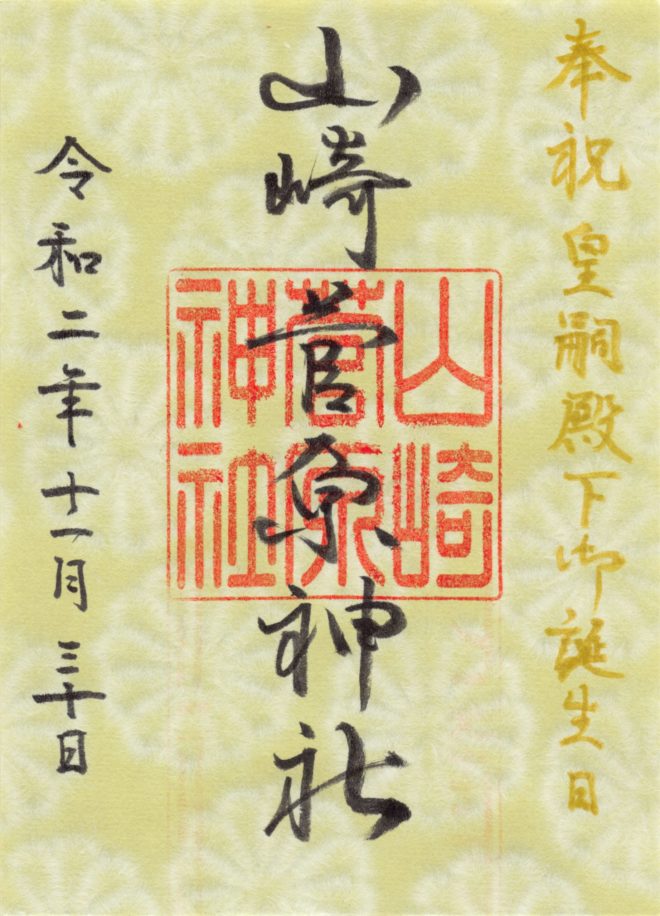 奉祝 皇嗣殿下御誕生日
山崎菅原神社
山崎
菅原
神社
令和二年十一月三十日